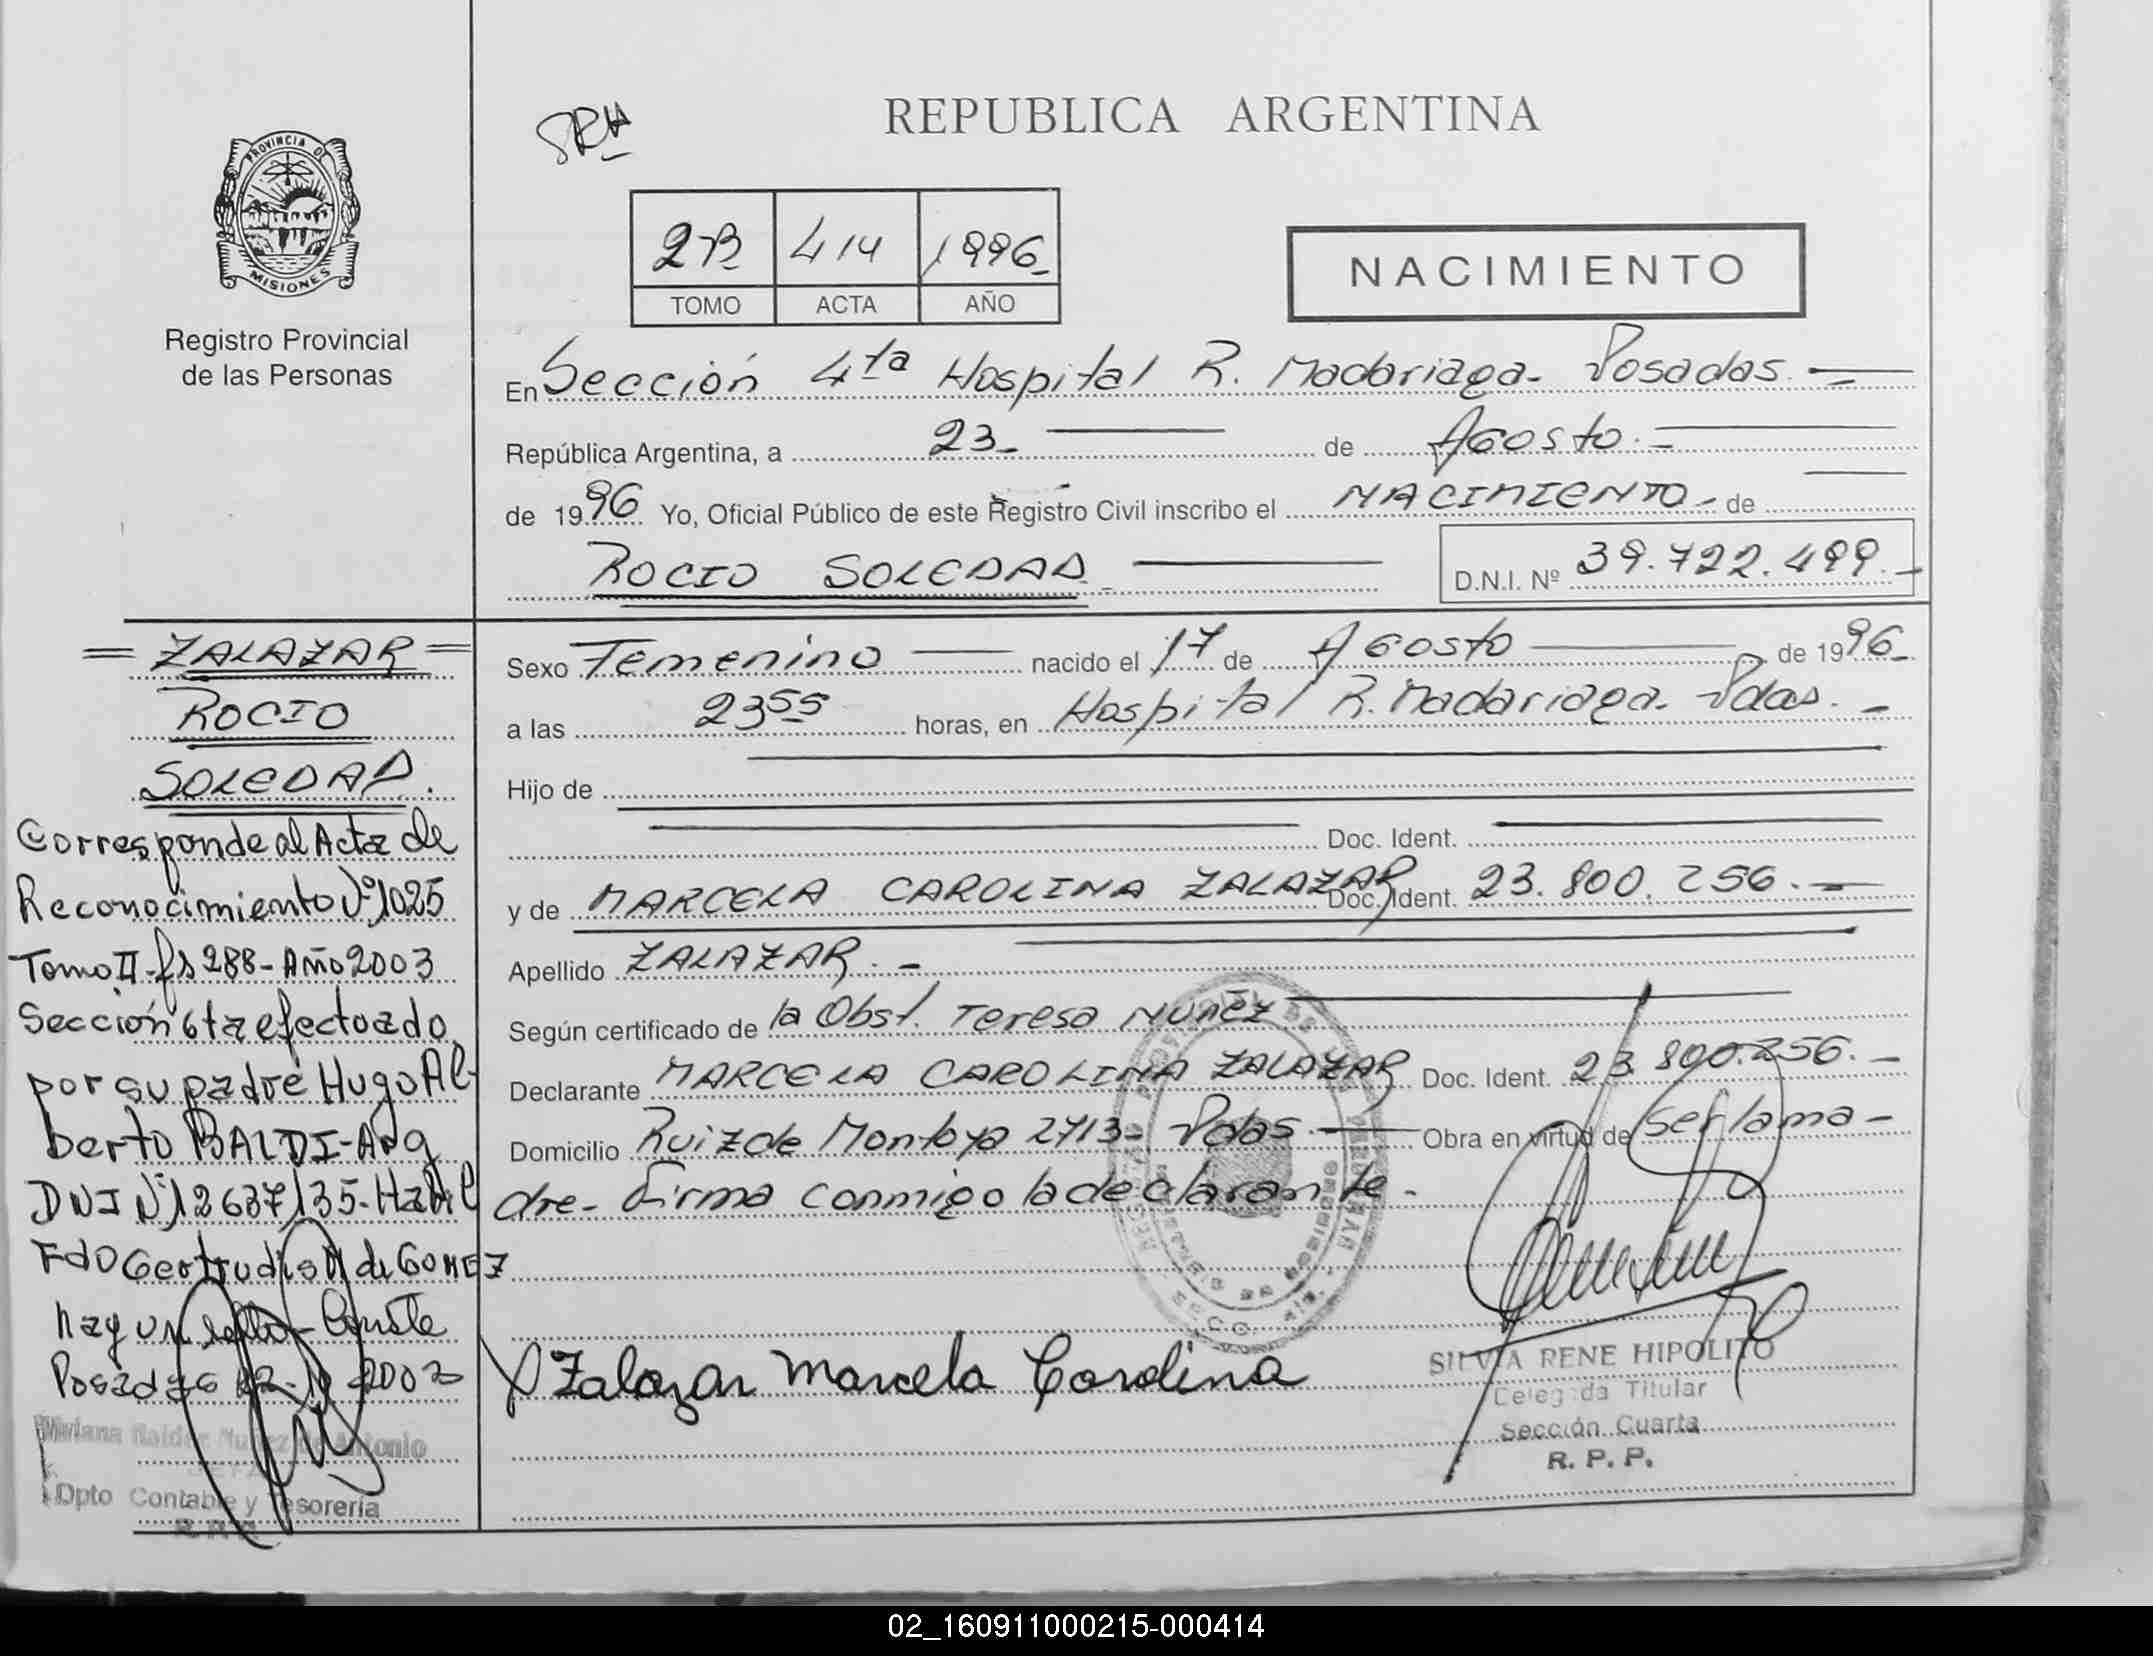 REPUBLICA ARGENTINA
SRH
PROVINCIA DE
MISIONES
Registro Provincial
de las Personas
2B 414 1996
TOMO ACTA AÑO
NACIMIENTO
En Sección 4ta Hospital R. Madariaga. Posadas.
República Argentina, a 23 de Agosto.
de 1996 Yo, Oficial Público de este Registro Civil inscribo el NACIMIENTO de
ROCIO SOLEDAD
D.N.I. Nº 39.722.499.
= ZALAZAR =
ROCIO
SOLEDAD.
Corresponde al Acta de
Reconocimiento Nº 1025
Tomo II-fs 288-Año 2003
Sección 6ta efectuado
por su padre Hugo Al-
berto BALDI-Arg
DNI Nº 12637135-Habil
Fdo Gertrudis M de GOMEZ
hay un sello- Conste
Posadas 2003
Nuñez de Antonio
JEFA
Dpto Contable y Tesorería
Sexo Femenino nacido el 17 de Agosto de 1996
a las 23 55 horas, en Hospital R. Madariaga. Pdas.
Hijo de
Doc. Ident.
y de MARCELA CAROLINA ZALAZAR Doc. Ident. 23.800.256.
Apellido ZALAZAR.
Según certificado de la Obst. Teresa Nuñez
Declarante MARCELA CAROLINA ZALAZAR Doc. Ident. 23.800.256.
Domicilio Ruiz de Montoya 2713- Pdas. Obra en virtud de ser la ma-
dre- Firma conmigo la declarante.
Zalazar Marcela Carolina
SILVIA RENE HIPOLITO
Delegada Titular
Sección Cuarta
R. P. P.
02_160911000215-000414